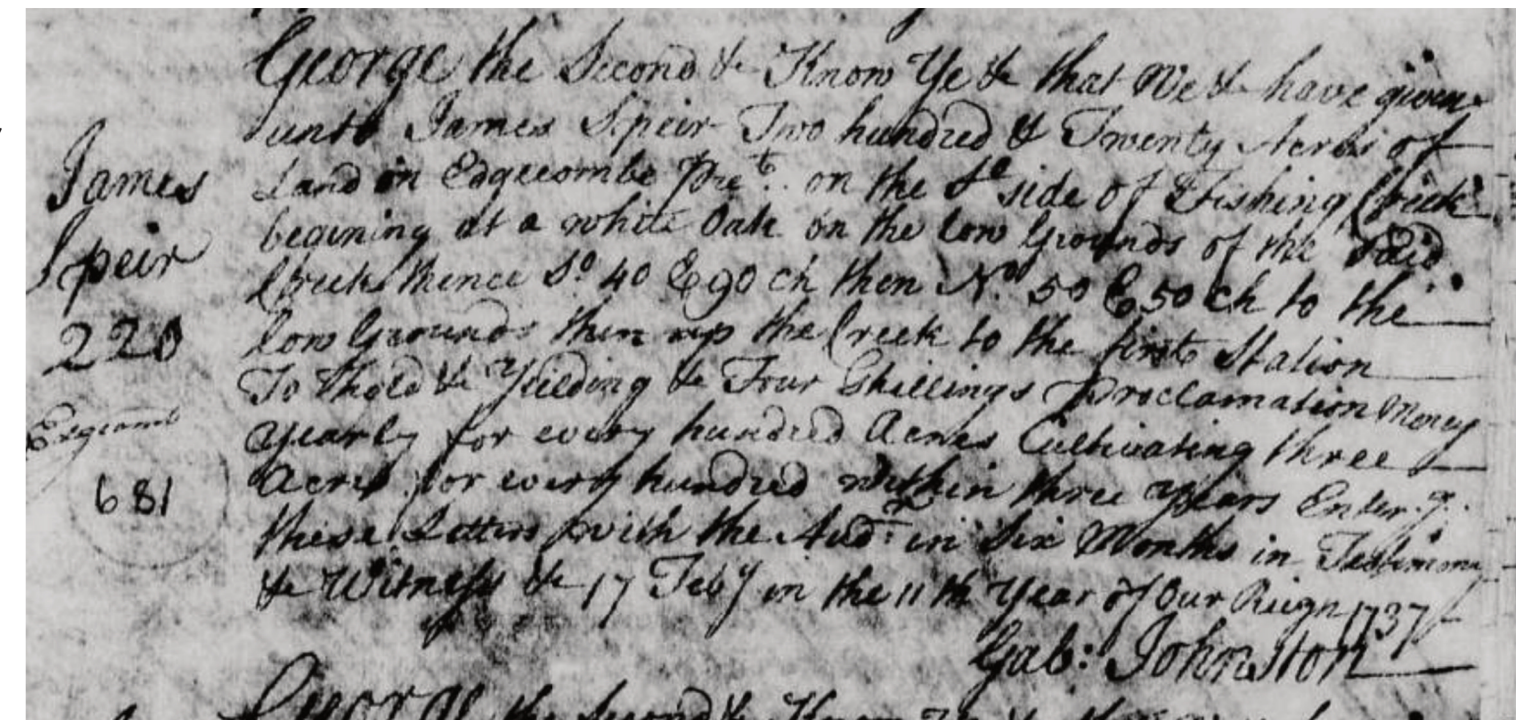 George the Second &c Know Ye &c that We &c have given
unto James Speir Two hundred & Twenty Acres of
Land in Edgecombe Prect. on the So side of Fishing Creek
begining at a white Oak on the low Grounds of the said
Creek thence So. 40 E 90 ch then No. 50 E 50 ch to the
low Grounds then up the Creek to the first Station
To Hold &c Yeilding &c Four Shillings Proclamation Money
yearly for every hundred Acres Cultivating three
Acres for every hundred within three years Enterg.
these Letters with the Audr. in Six Months in Testimony
&c Witness &c 17 Feby in the 11th Year of Our Reign 1737
Gab: Johnston
James
Speir
220
681
George the Second &c Know